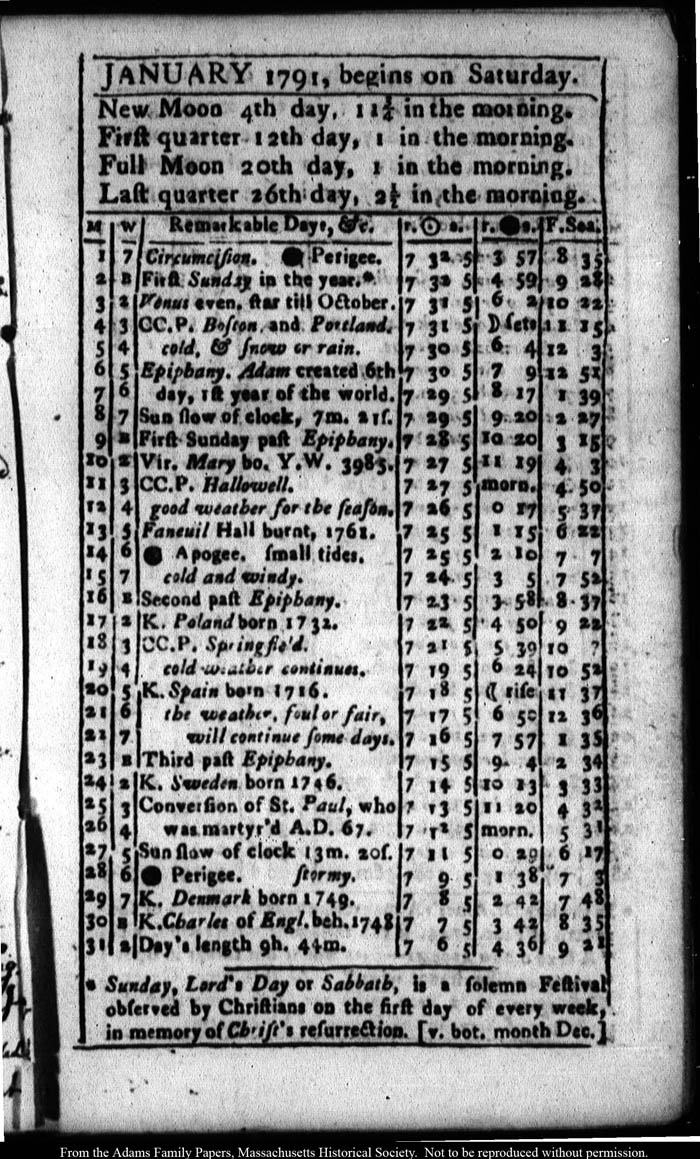 JANUARY 1791, begins on Saturday.
New Moon 4th day, 11¾ in the morning.
Firſt quarter 12th day, 1 in the morning.
Full Moon 20th day, 1 in the morning.
Laſt quarter 26th day, 2½ in the morning.
M W Remarkable Days, &c. r. ☉ s. r. ●s. F. Sea.
1 7 Circumciſion. ● Perigee. 7 32 5 3 57 8 35
2 B Firſt Sunday in the year.* 7 32 5 4 59 9 28
3 2 Venus even. ſtar till October. 7 31 5 6 2 10 22
4 3 CC.P. Boſton and Portland. 7 31 5 D ſets 11 15
5 4 cold, & ſnow or rain. 7 30 5 6 4 12 3
6 5 Epiphany. Adam created 6th 7 30 5 7 9 12 51
7 6 day, 1ſt year of the world. 7 29 5 8 17 1 39
8 7 Sun ſlow of clock, 7m. 21ſ. 7 29 5 9 20 2 27
9 B Firſt Sunday paſt Epiphany. 7 28 5 10 20 3 15
10 2 Vir. Mary bo. Y.W. 3985. 7 27 5 11 19 4 3
11 3 CC.P. Hallowell. 7 27 5 morn. 4 50
12 4 good weather for the ſeaſon. 7 26 5 0 17 5 37
13 5 Faneuil Hall burnt, 1761. 7 25 5 1 15 6 22
14 6 ● Apogee. ſmall tides. 7 25 5 2 10 7 7
15 7 cold and windy. 7 24 5 3 5 7 52
16 B Second paſt Epiphany. 7 23 5 3 58 8 37
17 2 K. Poland born 1732. 7 22 5 4 50 9 22
18 3 CC.P. Springfie'd. 7 21 5 5 39 10 7
19 4 cold weather continues. 7 19 5 6 24 10 52
20 5 K. Spain born 1716. 7 18 5 ☾ riſe 11 37
21 6 the weather, foul or fair, 7 17 5 6 50 12 36
22 7 will continue ſome days. 7 16 5 7 57 1 35
23 B Third paſt Epiphany. 7 15 5 9 4 2 34
24 2 K. Sweden born 1746. 7 14 5 10 13 3 33
25 3 Converſion of St. Paul, who 7 13 5 11 20 4 32
26 4 was martyr'd A.D. 67. 7 12 5 morn. 5 31
27 5 Sun ſlow of clock 13m. 20ſ. 7 11 5 0 29 6 17
28 6 ● Perigee. ſtormy. 7 9 5 1 38 7 3
29 7 K. Denmark born 1749. 7 8 5 2 42 7 48
30 B K. Charles of Engl. beh. 1748 7 7 5 3 42 8 35
31 2 Day's length 9h. 44m. 7 6 5 4 36 9 21
* Sunday, Lord's Day or Sabbath, is a ſolemn Feſtival
obſerved by Chriſtians on the firſt day of every week,
in memory of Chriſt's reſurrection. [v. bot. month Dec.]
From the Adams Family Papers, Massachusetts Historical Society. Not to be reproduced without permission.